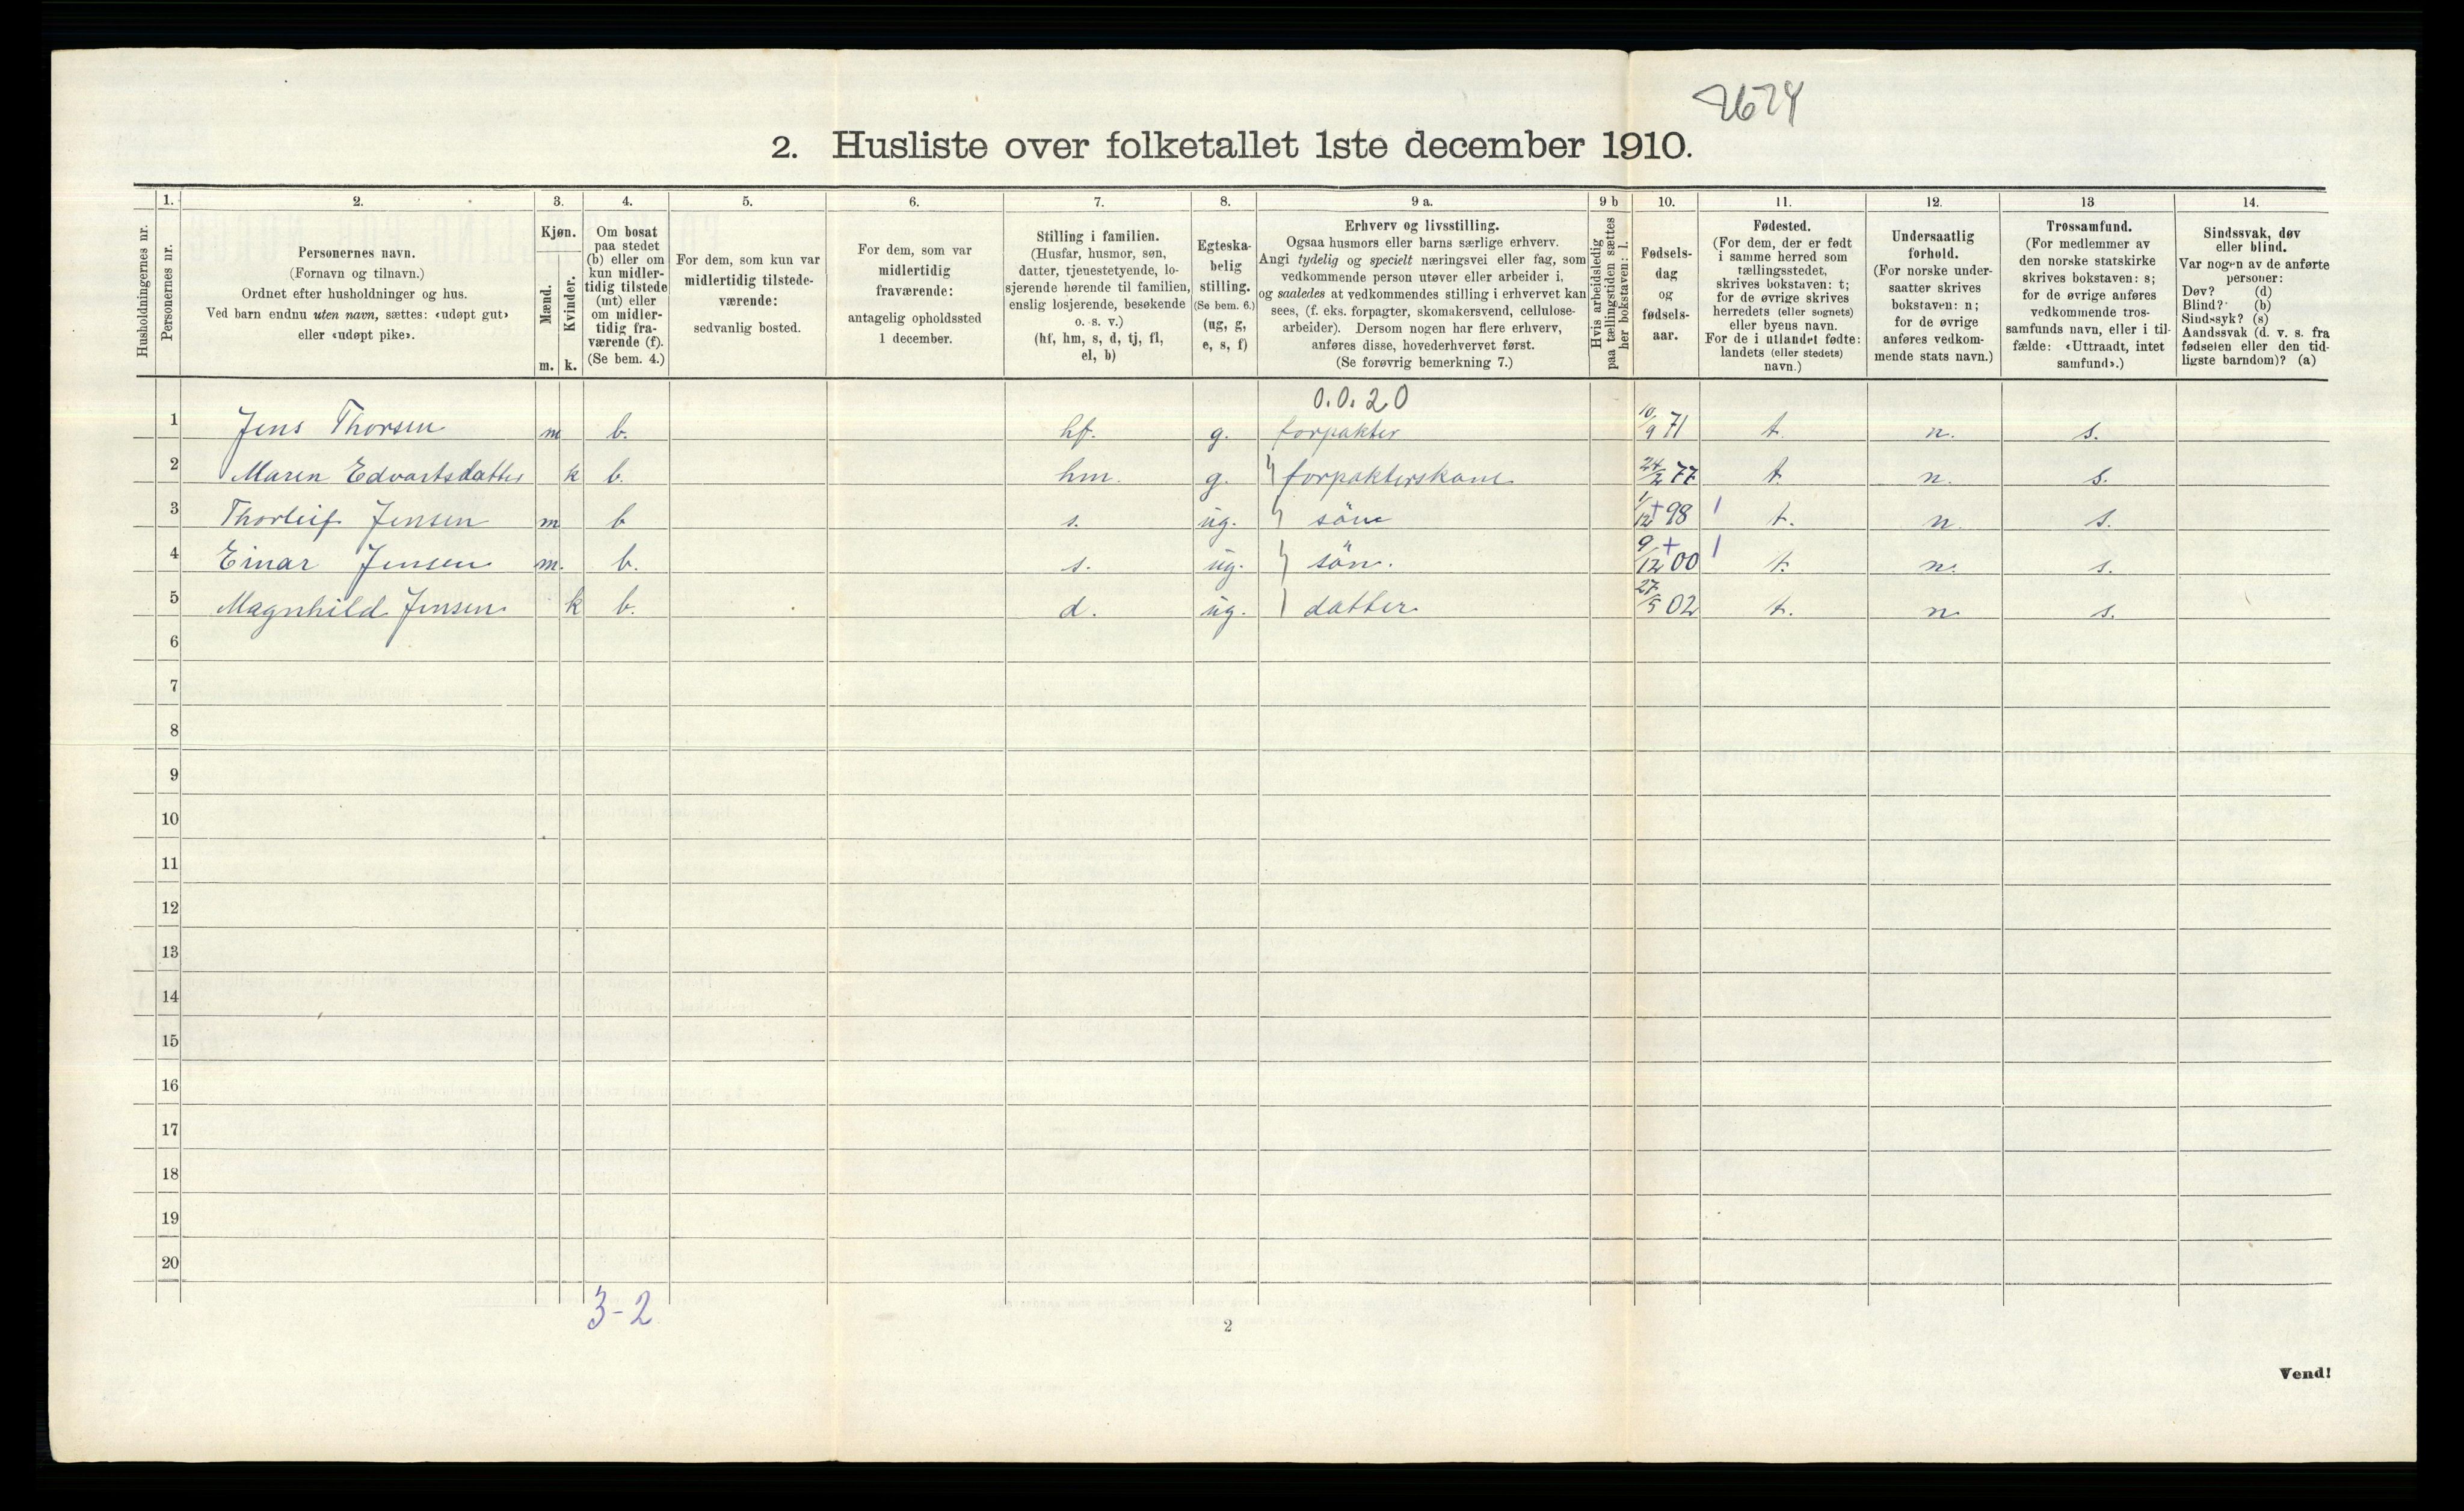 7674
2. Husliste over folketallet 1ste december 1910.
Husholdningernes nr.
1.
Personernes nr.
2.
Personernes navn.
(Fornavn og tilnavn.)
Ordnet efter husholdninger og hus.
Ved barn endnu uten navn, sættes: «udøpt gut»
eller «udøpt pike».
3.
Kjøn.
Mænd.
Kvinder.
m. k.
4.
Om bosat
paa stedet
(b) eller om
kun midler-
tidig tilstede
(mt) eller
om midler-
tidig fra-
værende (f).
(Se bem. 4.)
5.
For dem, som kun var
midlertidig tilstede-
værende:
sedvanlig bosted.
6.
For dem, som var
midlertidig
fraværende:
antagelig opholdssted
1 december.
7.
Stilling i familien.
(Husfar, husmor, søn,
datter, tjenestetyende, lo-
sjerende hørende til familien,
enslig losjerende, besøkende
o. s. v.)
(hf, hm, s, d, tj, fl,
el, b)
8.
Egteska-
belig
stilling.
(Se bem. 6.)
(ug, g,
e, s, f)
9 a.
Erhverv og livsstilling.
Ogsaa husmors eller barns særlige erhverv.
Angi tydelig og specielt næringsvei eller fag, som
vedkommende person utøver eller arbeider i,
og saaledes at vedkommendes stilling i erhvervet kan
sees, (f. eks. forpagter, skomakersvend, cellulose-
arbeider). Dersom nogen har flere erhverv,
anføres disse, hovederhvervet først.
(Se forøvrig bemerkning 7.)
9 b
Hvis arbeidsledig
paa tællingstiden sættes
her bokstaven: l.
10.
Fødsels-
dag
og
fødsels-
aar.
11.
Fødested.
(For dem, der er født
i samme herred som
tællingsstedet,
skrives bokstaven: t;
for de øvrige skrives
herredets (eller sognets)
eller byens navn.
For de i utlandet fødte:
landets (eller stedets)
navn.)
12.
Undersaatlig
forhold.
(For norske under-
saatter skrives
bokstaven: n;
for de øvrige
anføres vedkom-
mende stats navn.)
13
Trossamfund.
(For medlemmer av
den norske statskirke
skrives bokstaven: s;
for de øvrige anføres
vedkommende tros-
samfunds navn, eller i til-
fælde: «Uttraadt, intet
samfund».)
14.
Sindssvak, døv
eller blind.
Var nogen av de anførte
personer:
Døv? (d)
Blind? (b)
Sindssyk? (s)
Aandssvak (d. v. s. fra
fødselen eller den tid-
ligste barndom)? (a)
0.0.20
1 Jens Thorsen m b. hf. g. forpakter 10/9 71 t. n. s.
2 Maren Edvartsdatter k b. hm. g. forpakterskone 24/2 77 t. n. s.
3 Thorleif Jensen m b s. ug. søn 1/12 + 98 1 t. n. s.
4 Einar Jensen m. b. s. ug. søn. 9/12 + 00 1 t. n. s.
5 Magnhild Jensen k b. d. ug. datter 27/5 02 t. n. s.
6
7
8
9
10
11
12
13
14
15
16
17
18
19
20
3-2
2
Vend!